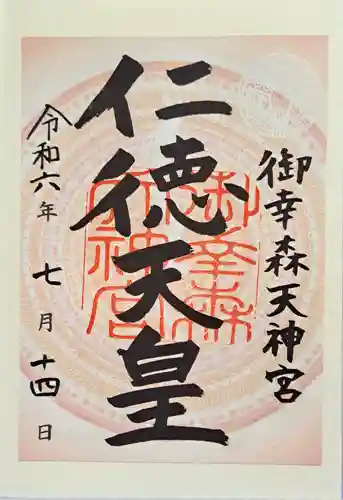 御幸森天神宮
仁徳天皇
御幸森天神宮
令和六年七月十四日